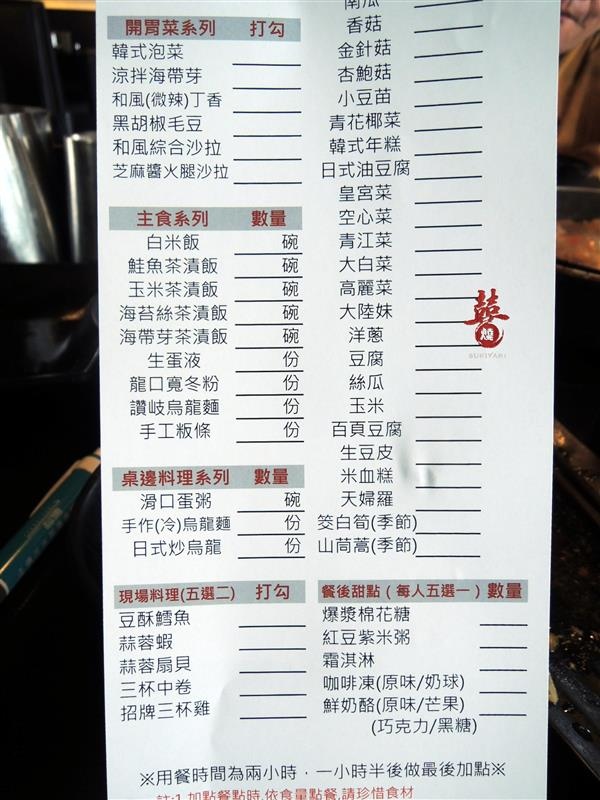 開胃菜系列 打勾
韓式泡菜
涼拌海帶芽
和風(微辣)丁香
黑胡椒毛豆
和風綜合沙拉
芝麻醬火腿沙拉
主食系列 數量
白米飯 碗
鮭魚茶漬飯 碗
玉米茶漬飯 碗
海苔絲茶漬飯 碗
海帶芽茶漬飯 碗
生蛋液 份
龍口寬冬粉 份
讚岐烏龍麵 份
手工粄條 份
桌邊料理系列 數量
滑口蛋粥 碗
手作(冷)烏龍麵 份
日式炒烏龍 份
現場料理(五選二) 打勾
豆酥鱈魚
蒜蓉蝦
蒜蓉扇貝
三杯中卷
招牌三杯雞
南瓜
香菇
金針菇
杏鮑菇
小豆苗
青花椰菜
韓式年糕
日式油豆腐
皇宮菜
空心菜
青江菜
大白菜
高麗菜
大陸妹
洋蔥
豆腐
絲瓜
玉米
百頁豆腐
生豆皮
米血糕
天婦羅
筊白筍(季節)
山茼蒿(季節)
燒
SUKIYAKI
餐後甜點（每人五選一）數量
爆漿棉花糖
紅豆紫米粥
霜淇淋
咖啡凍(原味/奶球)
鮮奶酪(原味/芒果)
(巧克力/黑糖)
※用餐時間為兩小時．一小時半後做最後加點※
註:1.加點餐點時,依食量點餐,請珍惜食材